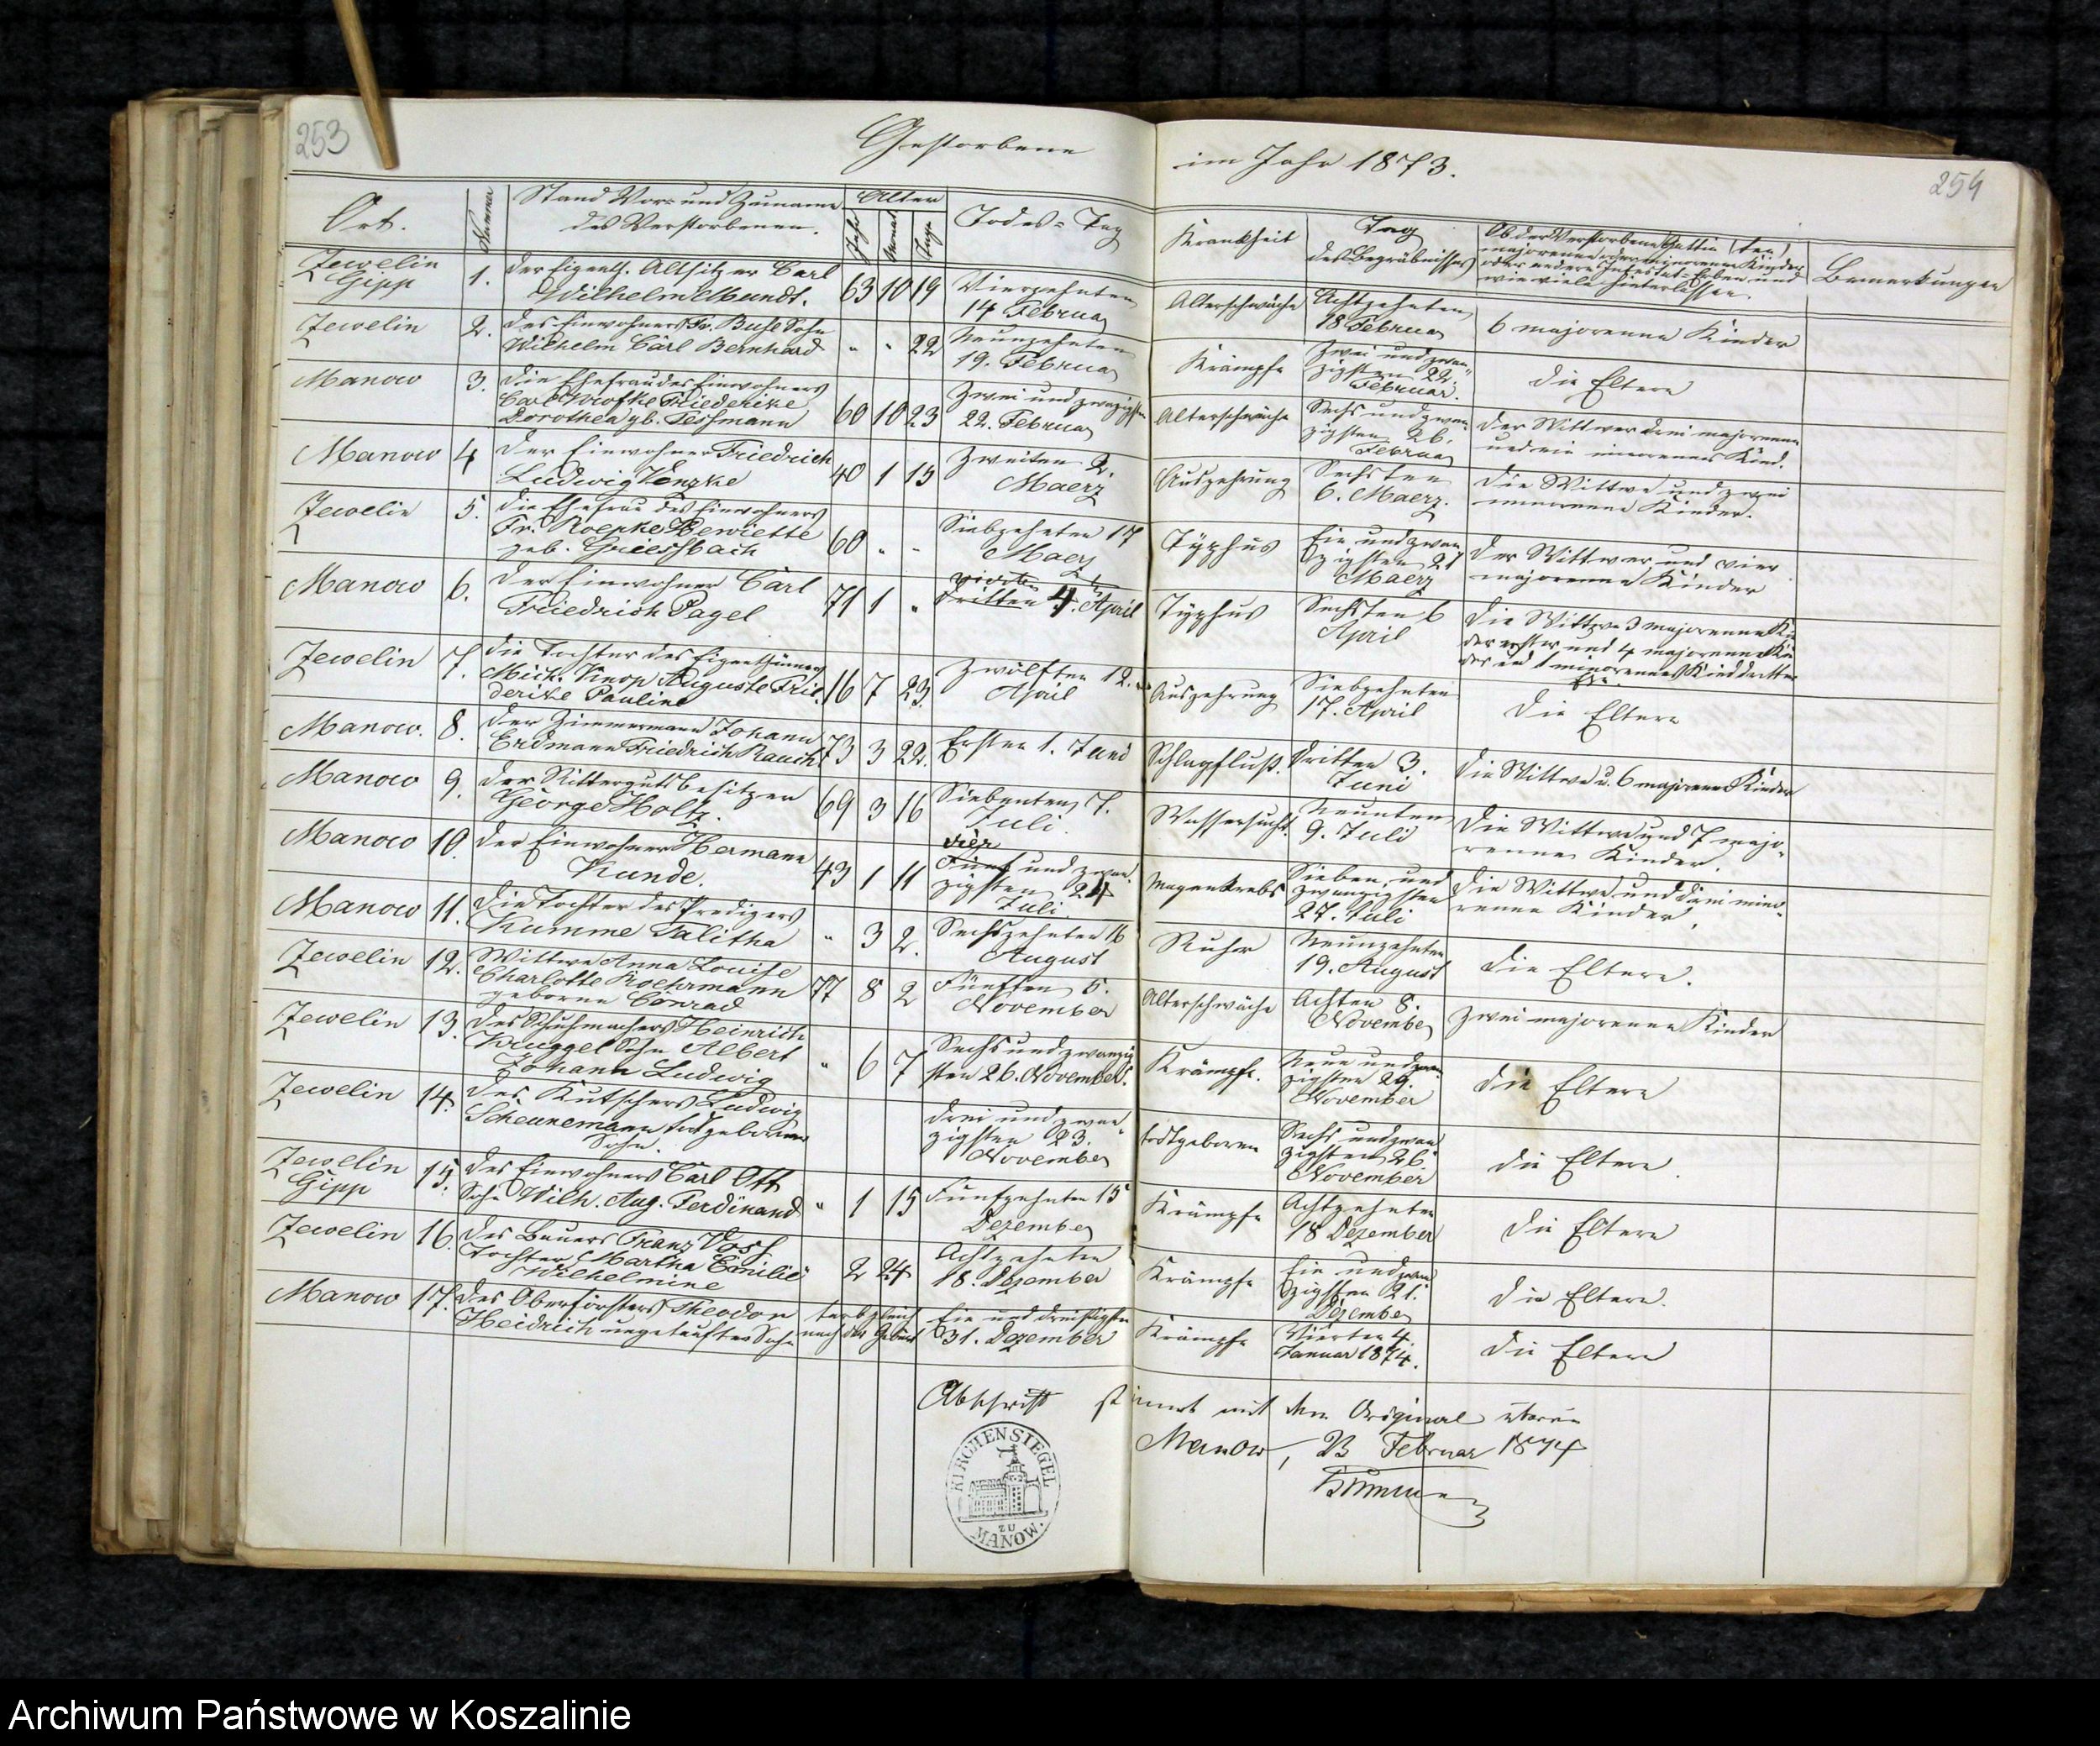 253
Gestorbene
im Jahr 1873.
254
Ort.
Nummer
Stand Vor- und Zuname
des Verstorbenen.
Alter
Jahr
Monat
Tage
Todes-Tag
Krankheit
Tag
des Begräbnisses
Ob der Verstorbene Gattin (ten)
majorenne oder minorenne Kinder
oder andere Intestat-Erben und
wie viele hinterlassen.
Bemerkungen
Zewelin
Gipp
1.
der Eigenth. Altsitzer Carl
Wilhelm Mundt.
63 10 19
Vierzehnten
14 Februar
Altersschwäche
Achtzehnten
18 Februar
6 majorenne Kinder
Zewelin
2.
des Einwohners Fr. Buse Sohn
Wilhelm Carl Bernhard
" " 22
Neunzehnten
19. Februar
Krämpfe
Zwei und zwan-
zigsten 22.
Februar.
die Eltern
Manow
3.
die Ehefrau des Einwohners
Carl Friederike
Dorothea gb. Tessmann
60 10 23
Zwei und zwanzigsten
22. Februar
Altersschwäche
Sechs und zwan-
zigsten 26.
Februar
der Wittwer drei majorenne
und ein minorennes Kind.
Manow
4
der Einwohner Friedrich
Ludwig Venzke
40 1 15
Zweiten 2.
Maerz
Auszehrung
Sechsten
6. Maerz.
die Wittwe und zwei
minorenne Kinder.
Zewelin
5.
die Ehefrau des Einwohners
Fr. Roepke Henriette
geb. Griessbach
60 " "
Siebzehnten 17
Maerz
Typhus
Ein und zwan
zigsten 21
Maerz
der Wittwer und vier
majorenne Kinder
Manow
6.
der Einwohner Carl
Friedrich Pagel
71 1 "
vierten
dritten 4. April
Typhus
Sechsten 6
April
die Wittwe 3 majorenne Kin
der erster und 4 majorenne Kin
der und 1 minorennes Kind dritter
Ehe.
Zewelin
7.
die Tochter des Eigenthümers
Mich. Knop Auguste Frie-
derike Pauline
16 7 23.
Zwölften 12.
April
Auszehrung
Siebzehnten
17. April
die Eltern
Manow.
8.
der Zimmermann Johann
Erdmann Friedrich Rauch
73 3 22.
Ersten 1. Juni
Schlagfluß.
dritten 3.
Juni
die Wittwe u. 6 majorenne Kinder
Manow
9.
der Rittergutsbesitzer
George Holtz.
69 3 16
Siebenten 7.
Juli.
Wassersucht.
Neunten
9. Juli
die Wittwe und 7 majo-
renne Kinder.
Manow
10.
der Einwohner Hermann
Kunde.
43 1 11
vier
Fünf und zwan-
zigsten 24
Juli.
Magenkrebs
Sieben und
zwanzigsten
27. Juli
die Wittwe und drei mino-
renne Kinder,
Manow
11.
die Tochter des Predigers
Kumme Talitha
" 3 2.
Sechszehnten 16
August
Ruhr
Neunzehnten
19. August
die Eltern.
Zewelin
12.
Wittwe Anna Louise
Charlotte Koehrmann
geborne Conrad
77 8 2
Fünften 5.
November
Altersschwäche
Achten 8.
November
zwei majorenne Kinder
Zewelin
13.
des Schuhmachers Heinrich
Wruggel Sohn Albert
Johann Ludwig
" 6 7
Sechs und zwanzig
sten 26. November.
Krämpfe.
Neun und zwan-
zigsten 29.
November
die Eltern
Zewelin
14.
des Kutschers Ludwig
Scheunemann todtgeborner
Sohn.
drei und zwan-
zigsten 23.
November
todtgeboren
Sechs und zwan
zigsten 26
November
die Eltern.
Zewelin
Gipp
15.
des Einwohners Carl Ott
Sohn Wilh. Aug. Ferdinand
" 1 15
Fünfzehnten 15
Dezember
Krämpfe
Achtzehnten
18 Dezember
die Eltern
Zewelin
16.
des Bauers Franz Voss
Tochter Martha Emilie
Wilhelmine
2 24
Achtzehnten
18. Dezember
Krämpfe
Ein und zwan
zigsten 21.
Dezember
die Eltern.
Manow
17.
des Oberförsters Theodor
Heidrich ungetaufter Sohn
gleich
nach der Geburt
Ein und dreißigsten
31. Dezember
Krämpfe
Vierten 4.
Januar 1874.
die Eltern
Abschrift stimmt mit dem Original überein
Manow, 23 Februar 1874
Kumme
KIRCHENSIEGEL
ZU
MANOW.
Archiwum Państwowe w Koszalinie